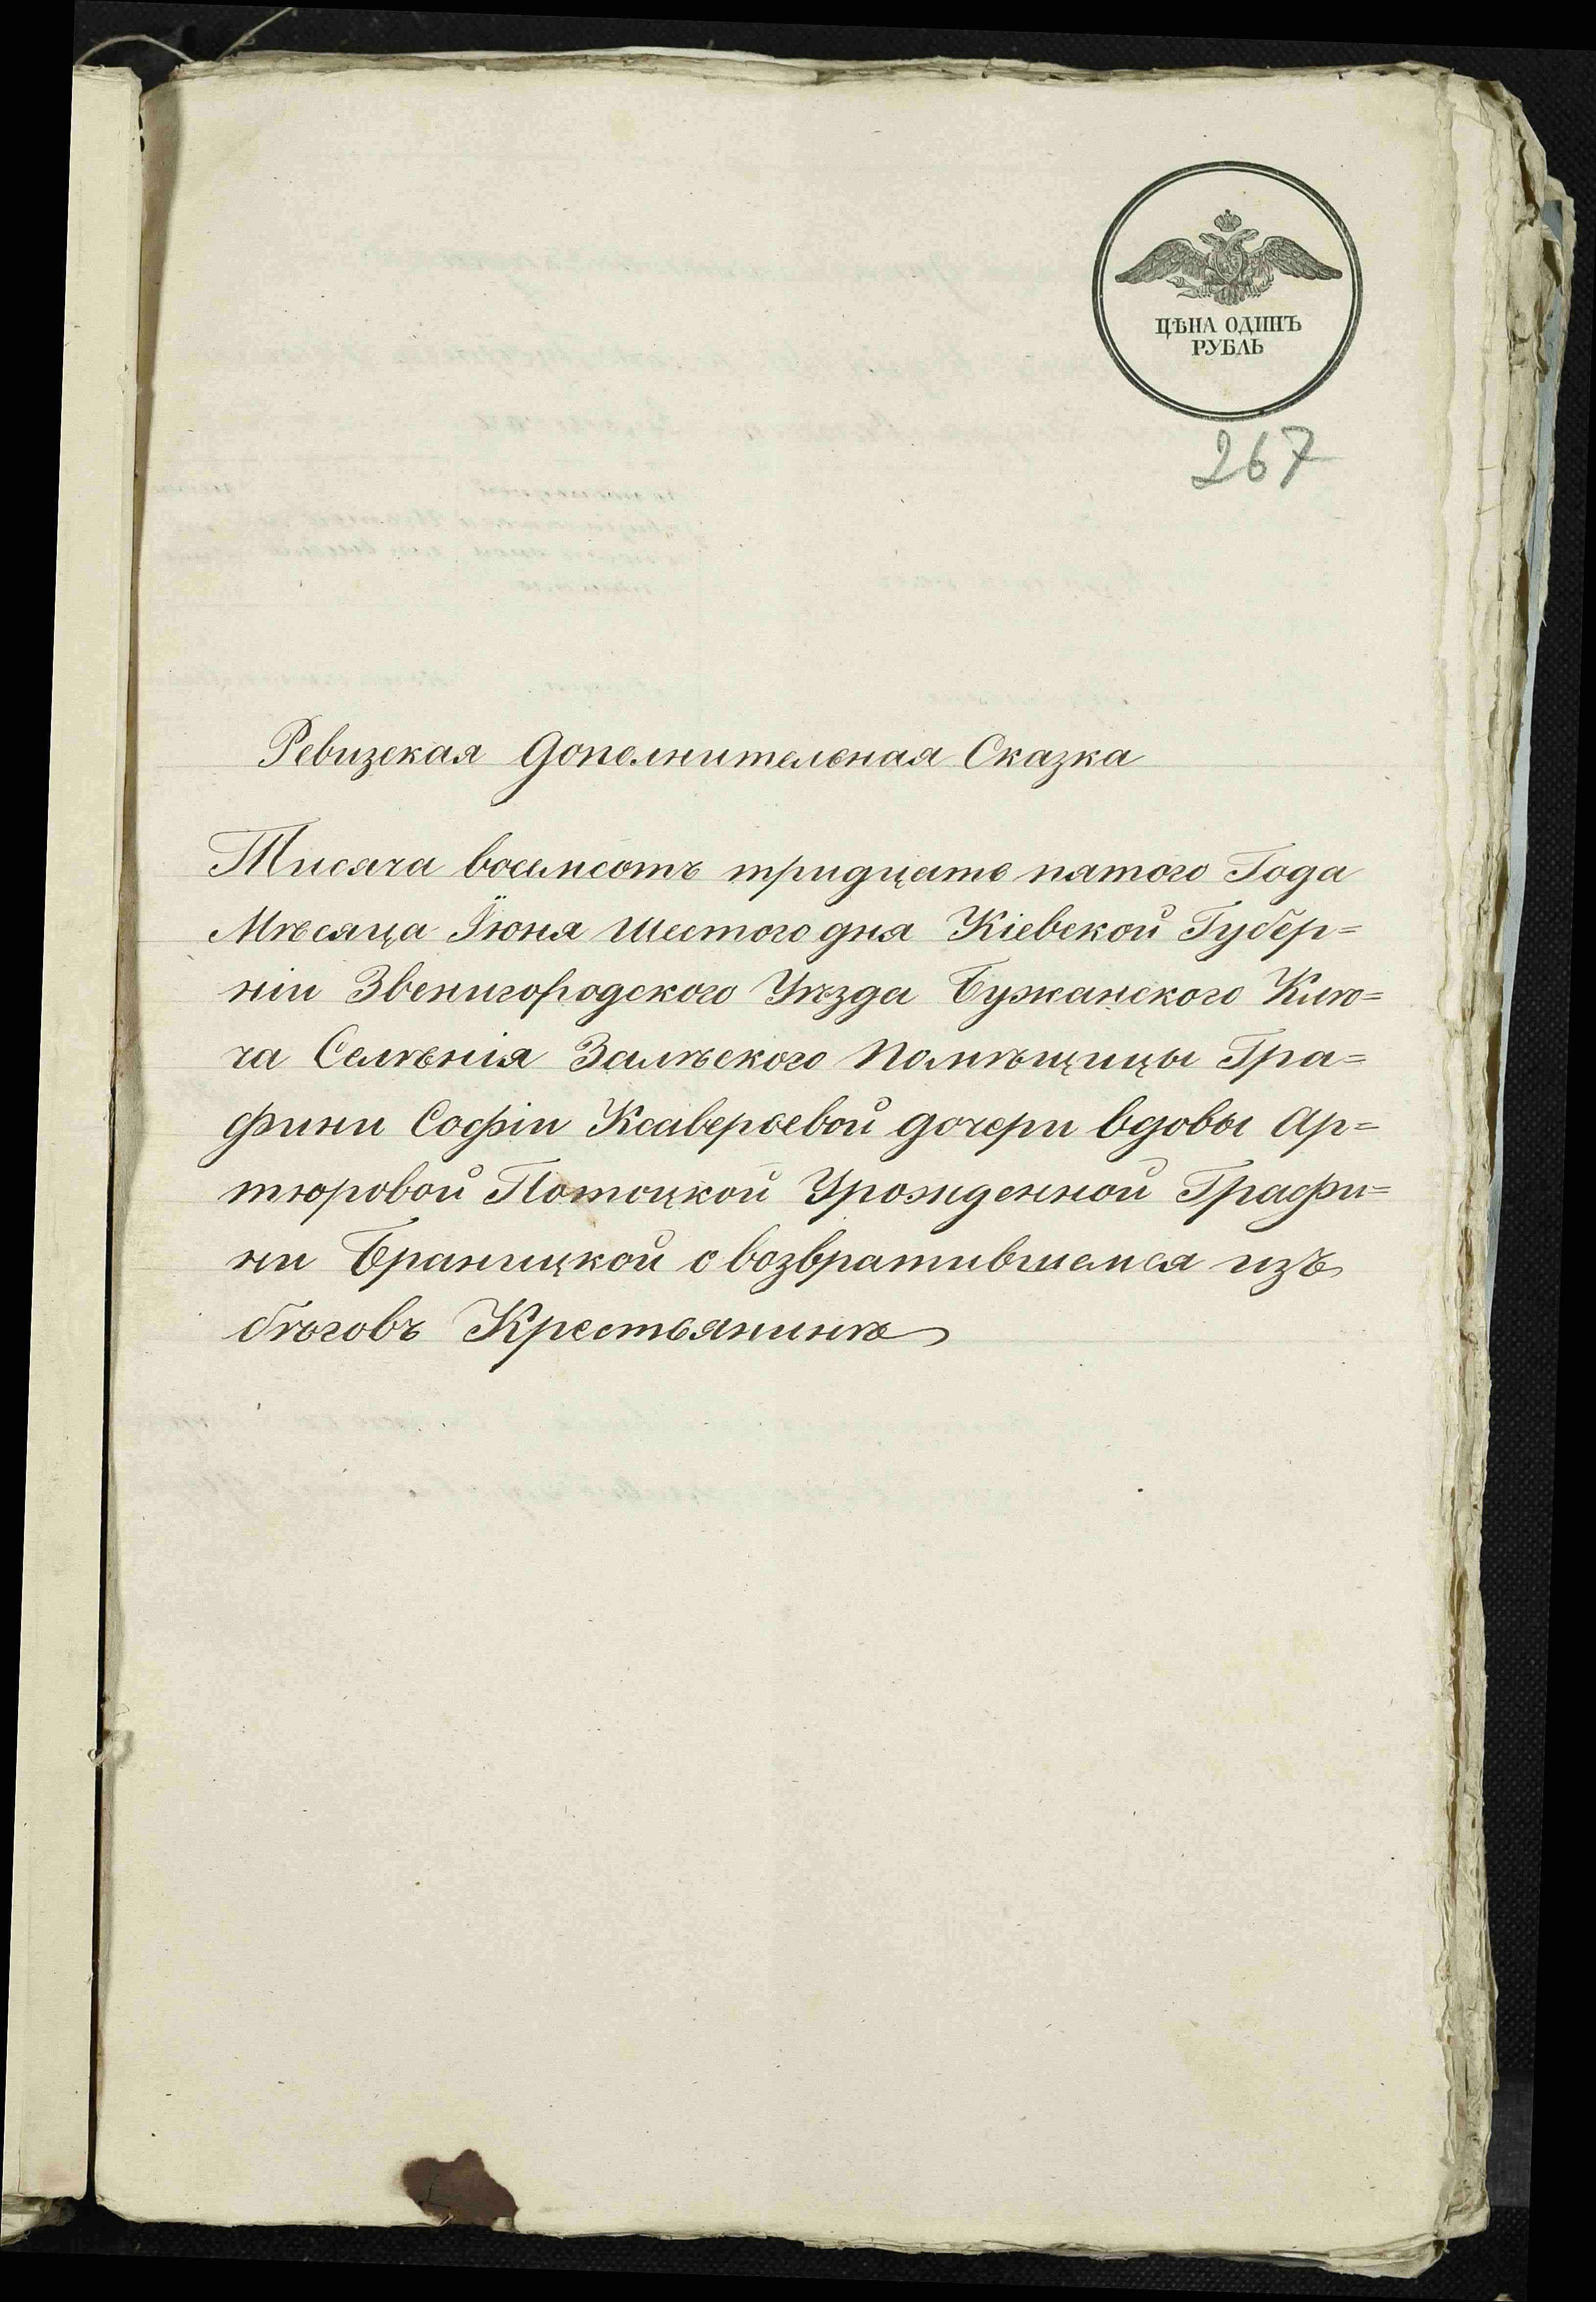 ЦѢНА ОДИНЪ
РУБЛЬ
267
Ревизская Дополнительная Сказка
Тисяча восемсотъ тридцать пятого Года
Мѣсяца Іюня шестого дня Кіевской Губер=
ніи Звенигородского Уѣзда Бужанского Клю=
ча Селѣнія Залѣского Помѣщицы Гра=
фини Софіи Ксаверьевой дочери вдовы Ар=
тюровой Потоцкой Урожденной Графи=
ни Браницкой о возвратившемся изъ
бѣговъ Крестьянинѣ